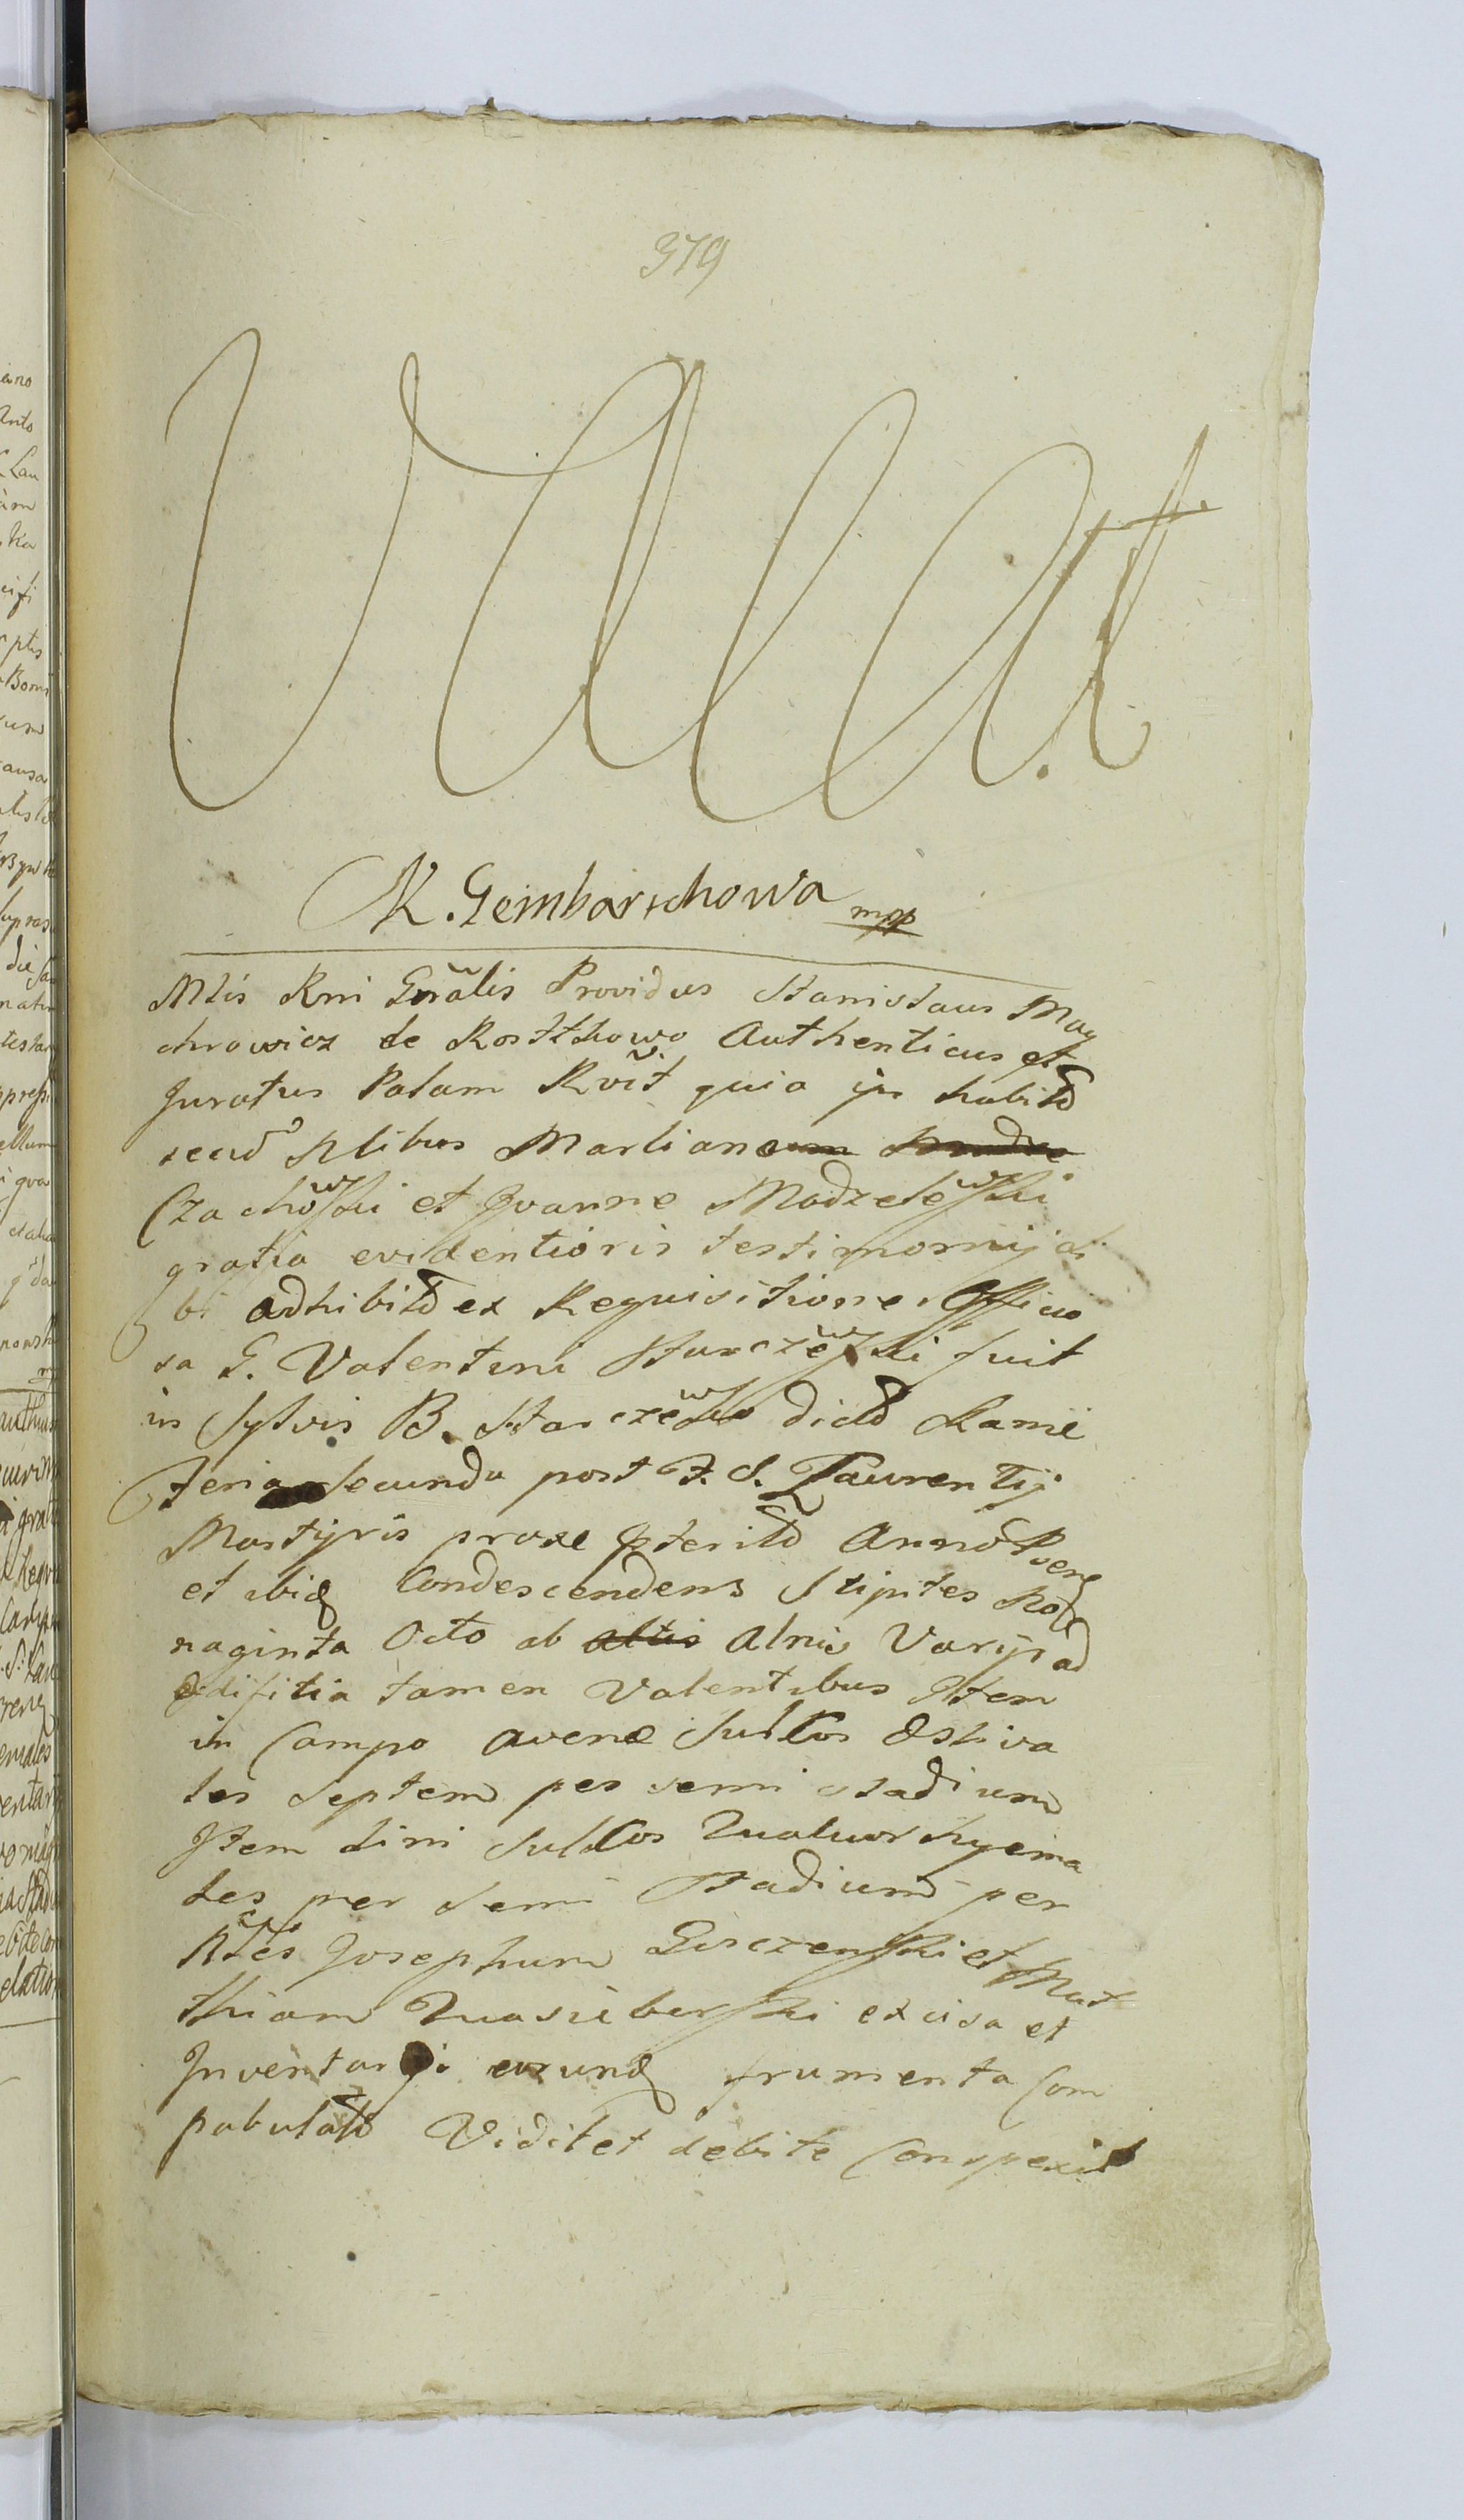 379
Vidit
K. Gembarschowa mpp
Mlis Rni Gnãlis Providus Stanislaus May
chrowicz de Rostkowo Authenticus et
Juratus Palam Rvit quia in habit
secud Nlibus Martiano
Czachowski et Joanne Modzelewski
gratia evidentioris testimonij si
bi adhibit ex Requisitione Officio
sa G. Valentini Starczewski fuit
in Sylvis B. Starczewo dict Kamie
Feria secunda post F. S. Laurentij
Martyris proxe pterit Anno Psene
et ibiq Condescendens Stipites No
naginta Octo ab altis Alnis Varijs ad
ædifitia tamen Valentibus Item
in Campo avenæ Sulcos Æstiva
les Septem per semi stadium
Item Lini Sulcos Quatuor hyema
les per Semi Stadium per
Nles Josephum Gierzenski et Mat
thiam Quasieborski excisa et
Inventarij eorund frumenta Com
pabulat Vidit et debite Conspexit